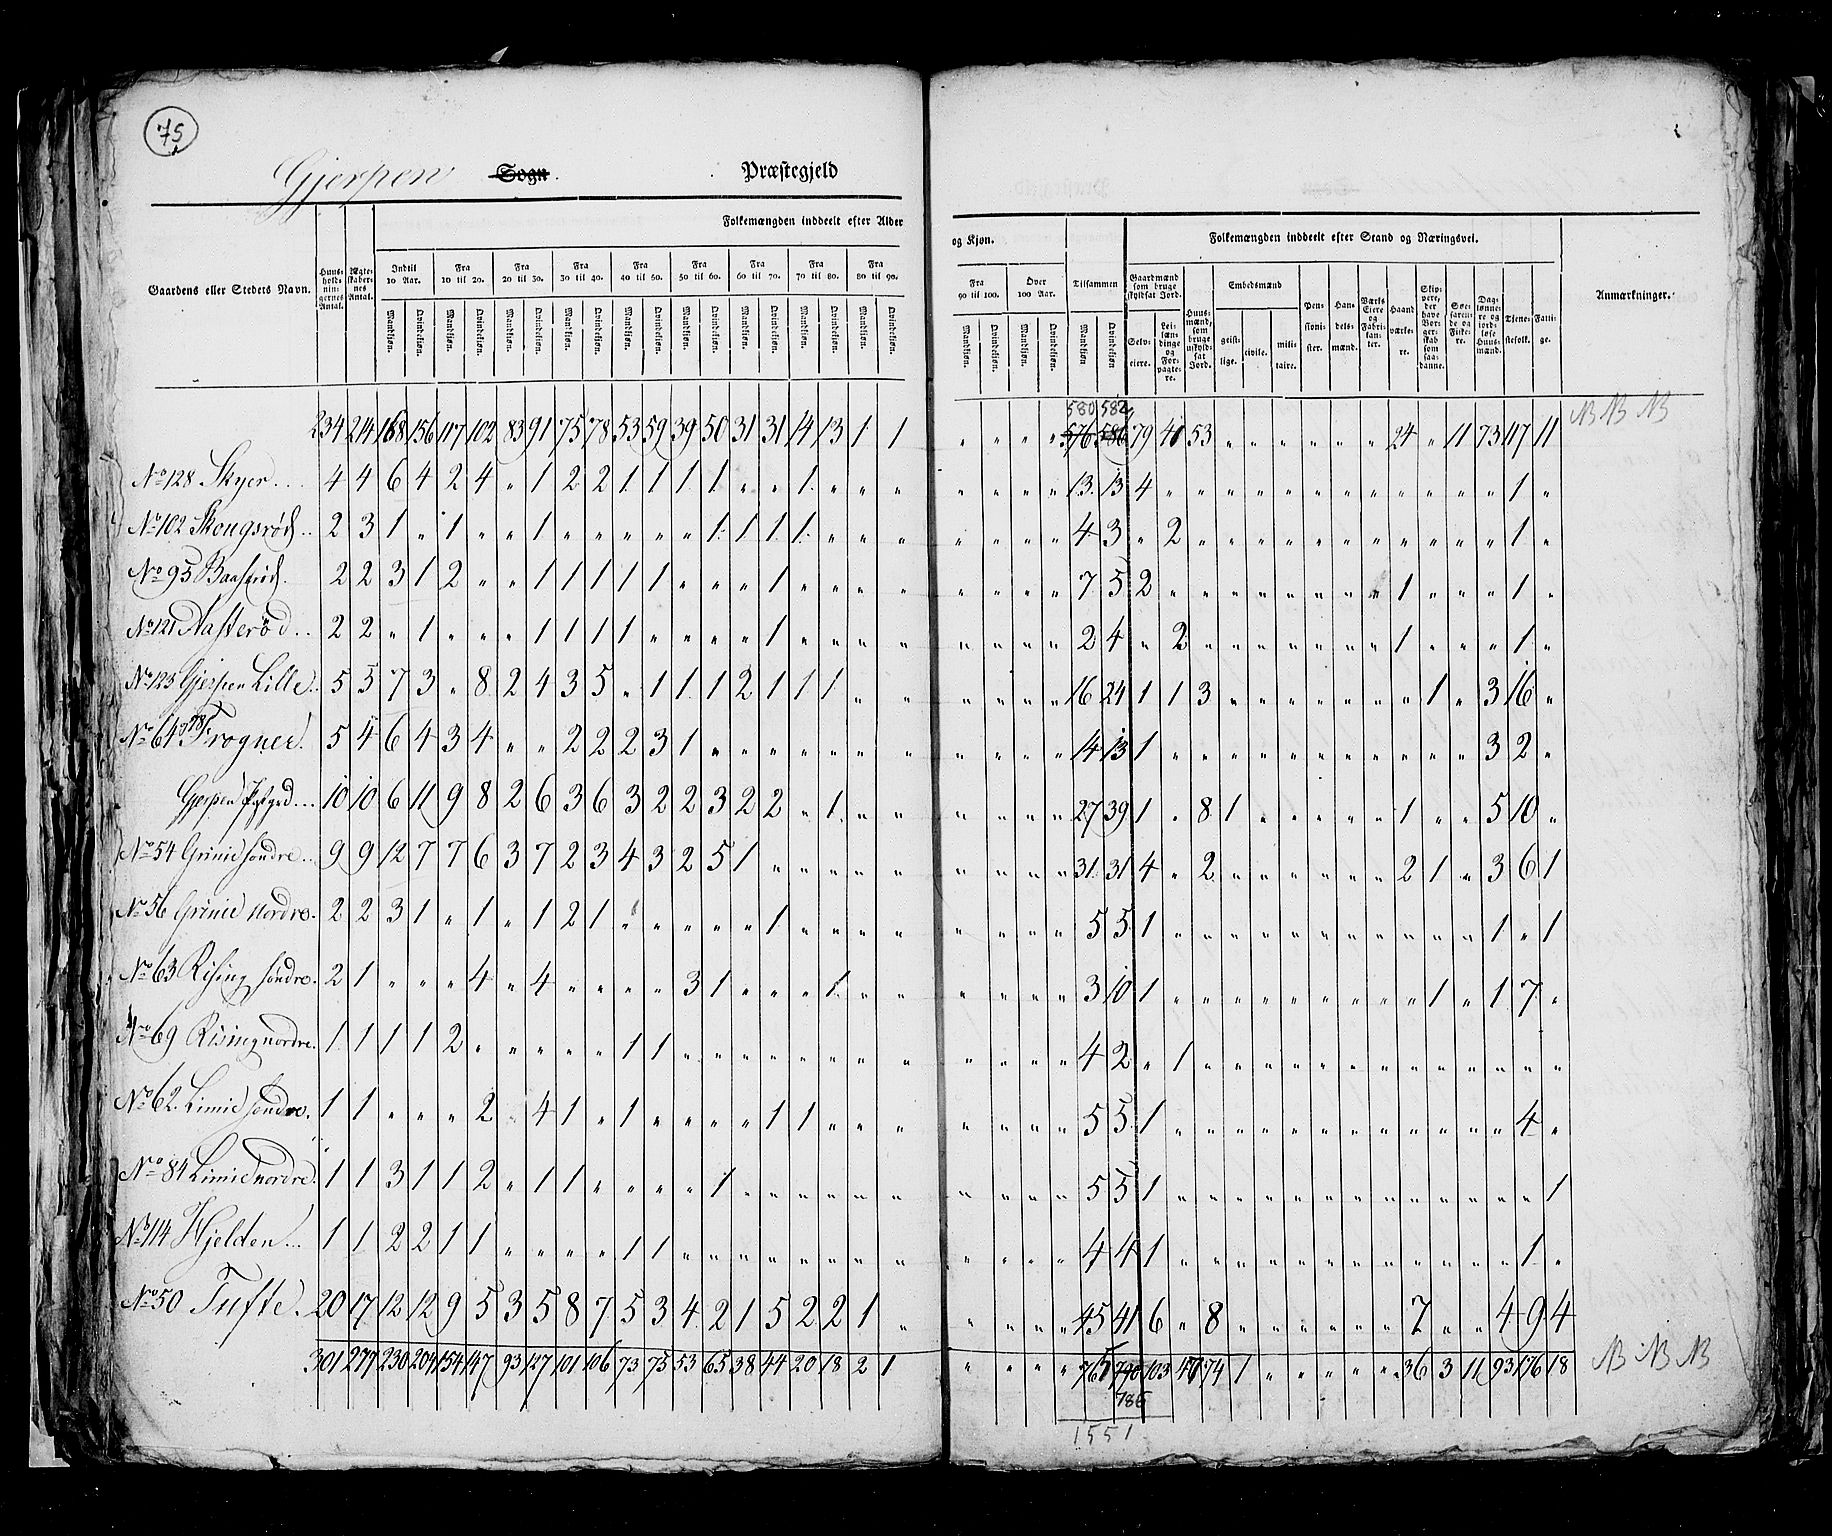 75
Gjerpen Sogn. Præstegjeld
Folkemængden inddeelt efter Alder og Kjøn. Folkemængden inddeelt efter Stand og Næringsvei.
Gaardens eller Stedets Navn. Huus-holdnin-gernes Antal. Ægte-skaber-nes Antal. Indtil 10 Aar. Fra 10 til 20. Fra 20 til 30. Fra 30 til 40. Fra 40 til 50. Fra 50 til 60. Fra 60 til 70. Fra 70 til 80. Fra 80 til 90. Fra 90 til 100. Over 100 Aar. Tilsammen Gaardmænd som bruge skyldsat Jord. Huus-mænd, som bruge uskyld-sat Jord. Embedsmænd Pen-sioni-ster. Han-dels-mænd. Værks Eiere og Fabri-kan-ter. Haand værke-re. Skip-pere, der have Bor-ger-skab som saa-danne. Søe-farende og Fiske-re. Dag-lønne-re og jord-løse Huus-mænd. Tjene-stefolk. Fatti-ge. Anmærkninger.
Mandkjøn. Qvindekjøn. Mandkjøn. Qvindekjøn. Mandkjøn. Qvindekjøn. Mandkjøn. Qvindekjøn. Mandkjøn. Qvindekjøn. Mandkjøn. Qvindekjøn. Mandkjøn. Qvindekjøn. Mandkjøn. Qvindekjøn. Mandkjøn. Qvindekjøn. Mandkjøn. Qvindekjøn. Mandkjøn. Qvindekjøn. Mandkjøn Qvindekjøn Selv-eiere. Lei-læn-dinge og For-pagte-re. geist-lige. civile. mili-taire.
580 582
234 214 168 156 117 102 83 91 75 78 53 59 39 50 31 31 14 13 1 1 " " " " 576 586 79 41 53 " " " " " " 24 " 11 73 117 11 NB NB NB
No 128 Skyer... 4 4 6 4 2 4 " 1 2 2 1 1 1 1 " " 1 " " " " " " " 13 13 4 " " " " " " " " " " " " 1 "
No 102 Skougsrød.. 2 3 1 " 1 " " 1 " " " " " 1 1 1 1 " " " " " " " 4 3 " 2 " " " " " " " " " " " 1 "
No 95 Baasrød. 2 2 3 1 2 " " 1 1 1 1 1 " " " 1 " " " " " " " " 7 5 2 " " " " " " " " 1 " " " 1 "
No 121 Aasterød.. 2 2 " 1 " " " 1 1 1 1 " " " " 1 " " " " " " " " 2 4 " 2 " " " " " " " 1 " " " 1 "
No 125 Gjerpen Lille. 5 5 7 3 " 8 2 4 3 5 " 1 1 1 2 1 1 1 " " " " " " 16 24 1 1 3 " " " " " " " 1 " 3 16 "
No 64 Frogner. 5 4 6 4 3 4 " " 2 2 2 3 1 " " " " " " " " " " " 14 13 1 " " " " " " " " " " " 3 2 "
Gjerpen Pstgrd... 10 10 6 11 9 8 2 6 3 6 3 2 2 3 2 2 " 1 " " " " " " 27 39 1 " 8 1 " " " " " 1 " " 5 10 "
No 54 Grinie søndre.. 9 9 12 7 7 6 3 7 2 3 4 3 2 5 1 " " " " " " " " " 31 31 4 " 2 " " " " " " 2 1 " 3 6 1
No 56 Grinie Nordre. 2 2 3 1 " 1 " 1 2 1 " " " " " 1 " " " " " " " " 5 5 1 " " " " " " " " " " " 1 " 1
No 63 Rising søndre. 2 1 " " " 4 " 4 " " " " 3 1 " " " 1 " " " " " " 3 10 1 " " " " " " " " " 1 " 1 7 "
No 69 Rising nordre. 1 1 1 1 2 " " " " " 1 1 " " " " " " " " " " " " 4 2 " 1 " " " " " " " " " " " " "
No 62. Limie søndre. 1 1 " " " 2 " 4 1 " 1 " " " " 1 1 " " " " " " " 5 5 1 " " " " " " " " " " " " 4 "
No 84 Limie nordre. 1 1 3 1 1 2 " 1 1 " " " " 1 " " " " " " " " " " 5 5 1 " " " " " " " " " " " " " 1
No 114 Hjelden... 1 1 2 2 1 1 " " " " 1 1 " " " " " " " " " " " " 4 4 1 " " " " " " " " " " " " 1 "
No 50 Tufte. 20 17 12 12 9 5 3 5 8 7 5 3 4 2 1 5 2 2 1 " " " " " 45 41 6 " 8 " " " " " " 7 " " 4 9 4
301 277 230 204 154 147 93 127 101 106 73 75 53 65 38 44 20 18 2 1 " " " " 765 790 103 47 74 1 " " " " " 36 3 11 93 176 18 NB NB NB
786
1551